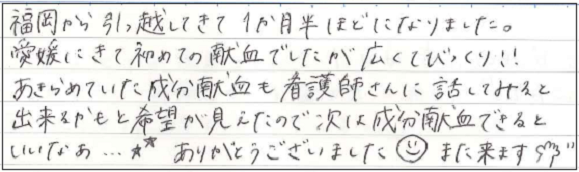 福岡から引っ越してきて1か月半ほどになりました。
愛媛にきて初めての献血でしたが広くてびっくり!!
あきらめていた成分献血も看護師さんに話してみると
出来るかもと希望が見えたので次は成分献血できると
いいなぁ…★★ ありがとうございました☺ また来ます